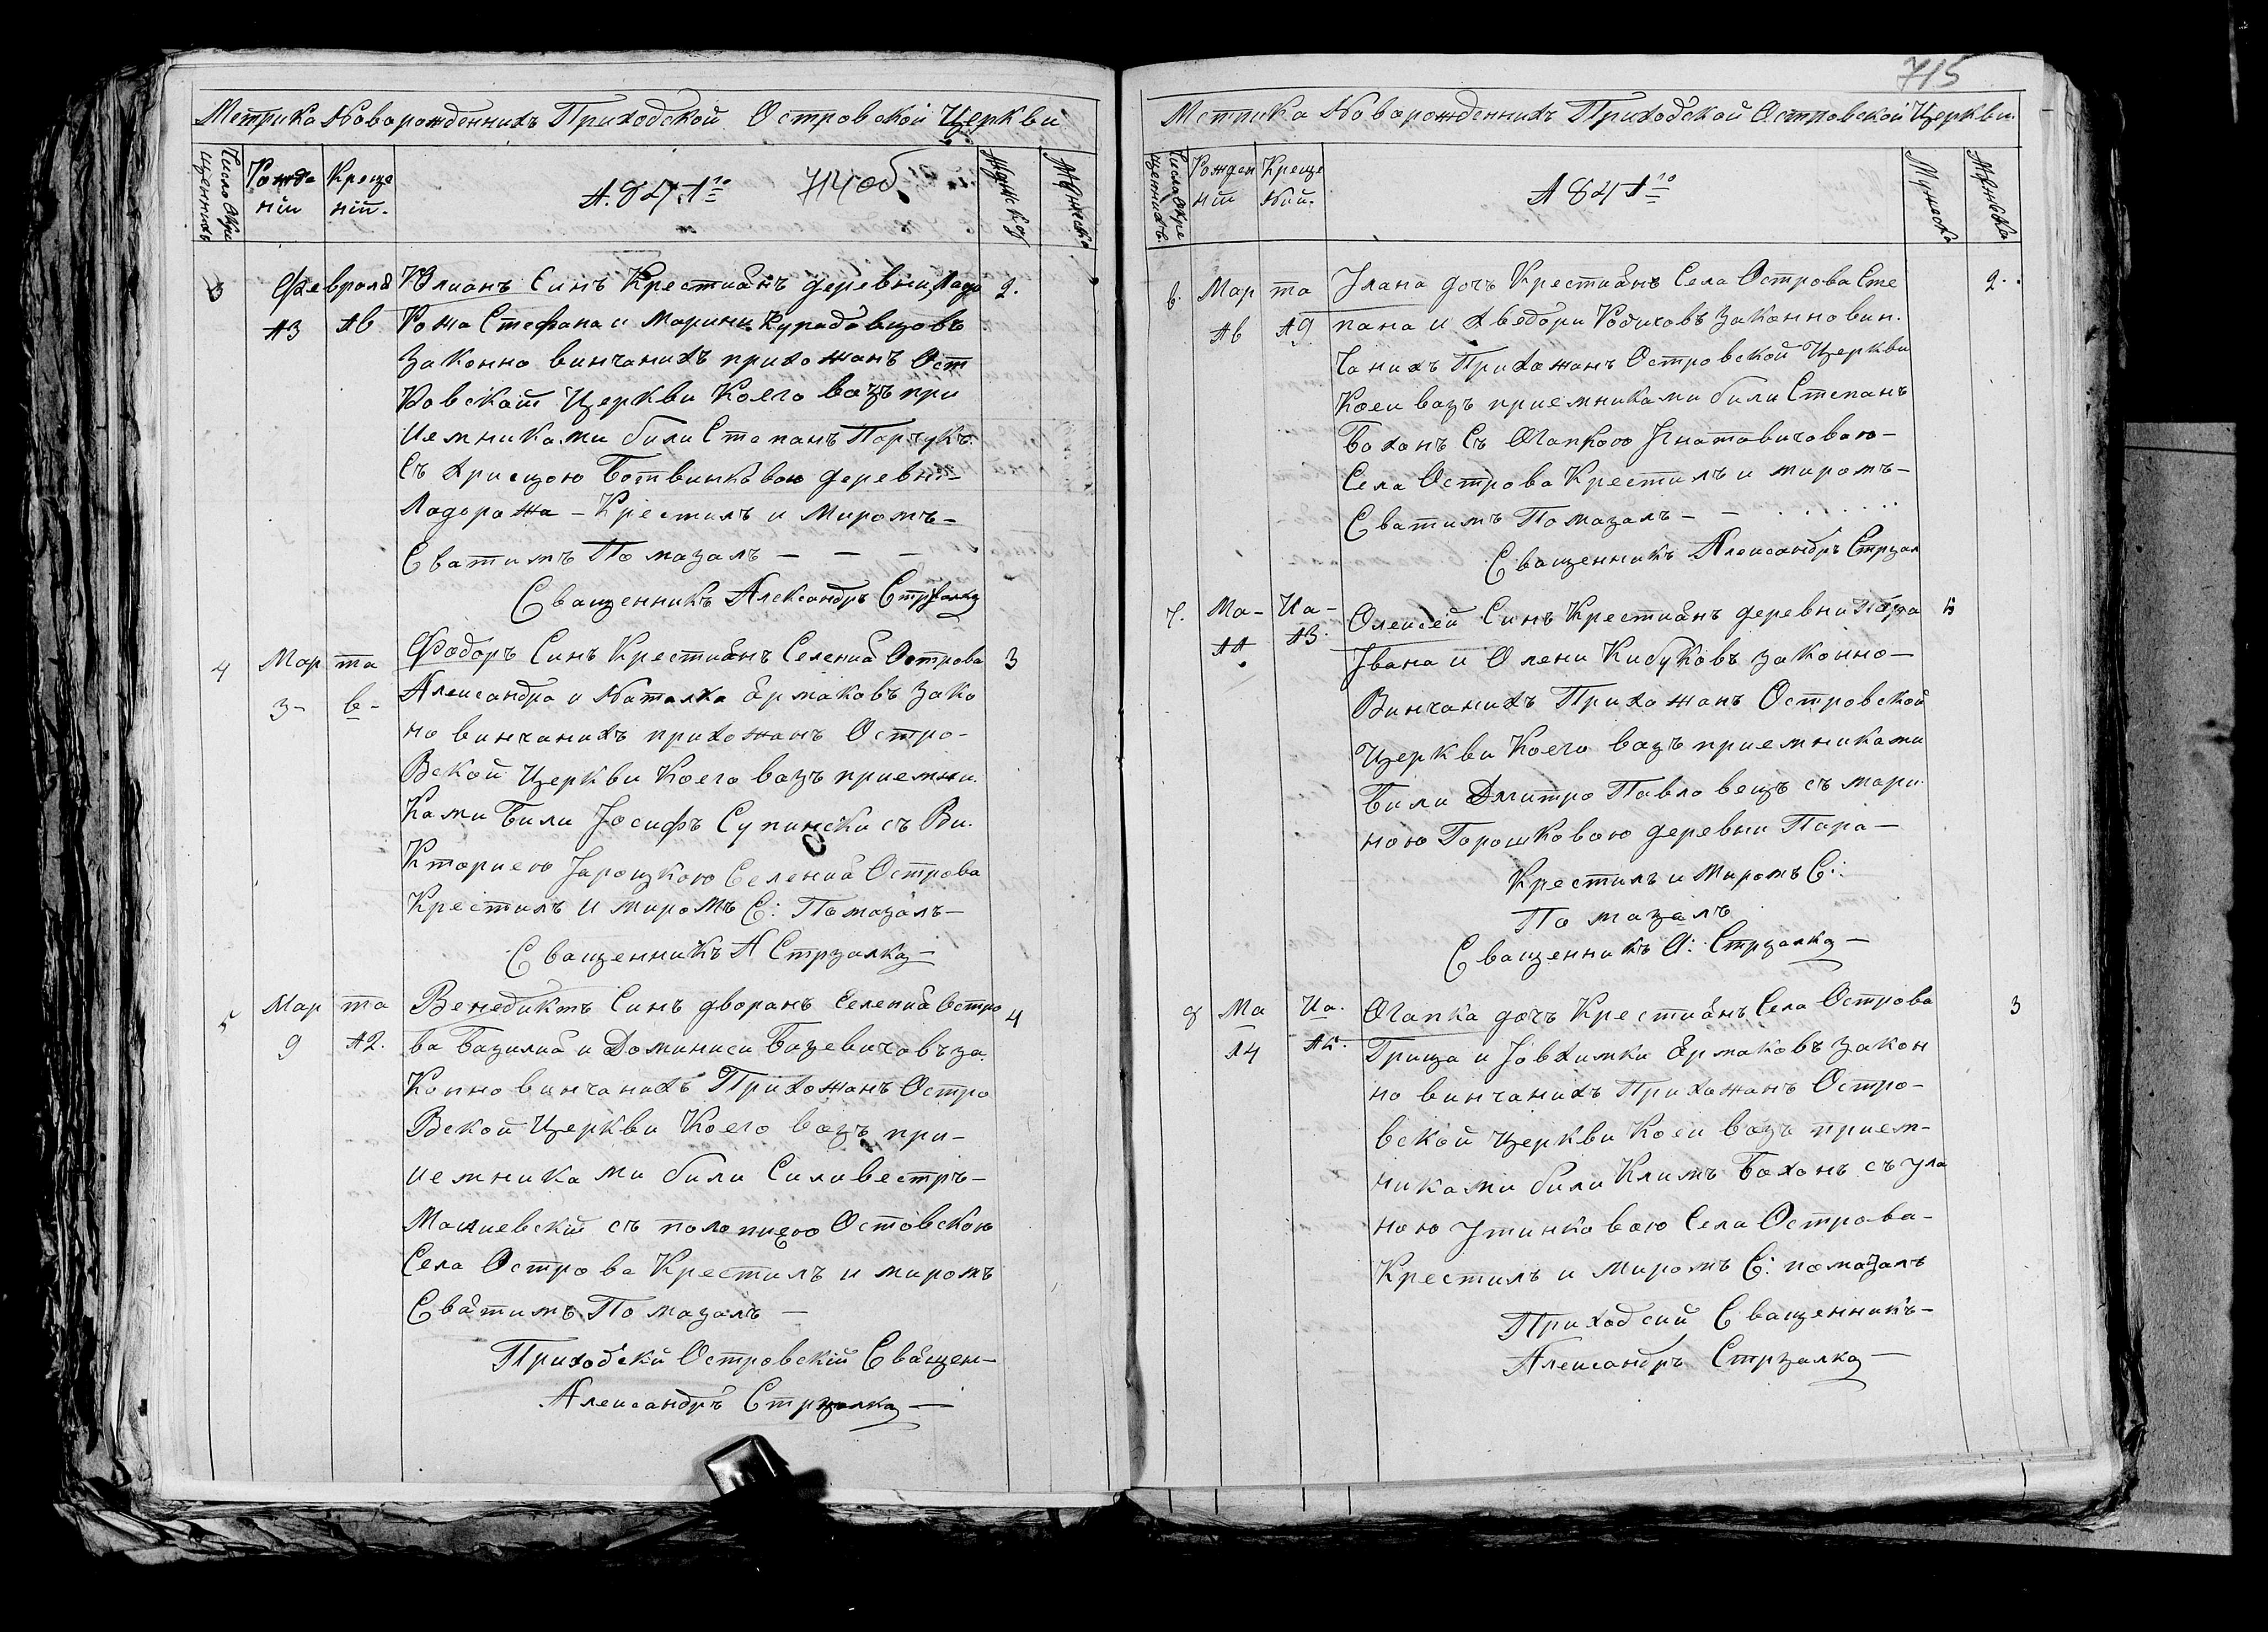 Метрика Новорожденныхъ Приходской Островской Церкви
Число Окре
щенныхъ
Рожде
нiи
Креще
нiй.
1841го
714об.
Мужеска
Женска
Февраля Юлианъ Синъ Крестианъ деревни Ладо
2.
13 16 рожа Стефана и Марини
законно винчанихъ прихожанъ Ост
ровской Церкви Коего вазъ при
иемниками били Степанъ Парчукъ
Съ Христою деревни
Ладорожа - Крестилъ и Миромъ -
Сватимъ Помазалъ - - -
Сващенникъ Александръ Стрзалка
4 Мар та Фадоръ Синъ Крестианъ Селения Острова 3
3 - 6 - Александра и Наталки Ермаковъ Зако
но винчанихъ прихожанъ Остро-
Вской Церкви Коего вазъ приемни
Ками Били Iосифъ Супински съ Ви-
Кториею Iароцкою Селения Острова
Крестилъ и миромъ С: Помазалъ -
Сващенникъ А Стрзалка -
5 Мар та Венедиктъ Синъ дворанъ Селения Остро 4
9 12. ва Базилия и Доминиси Базевичовъ за
Конно винчанихъ Прихожанъ Остро
Вской Церкви Коего вазъ при-
иемниками били Силивестръ -
съ Остовскою
Села Острова Крестилъ и миромъ
Сватимъ Помазалъ -
Приходски Островскiй Сващен-
Александръ Стрзалка -
715
Метрика Новорожденнихъ Приходской Островской Церкви
Число Окре
щеннихъ.
Рожден
нiй
Креще
Ний.
1841го
Мужеска
Женска
6. Мар та Iлана дочъ Крестианъ Села Острова Сте 2.
16 19. пана и Хведори Родиховъ Законно вин.
Чанихъ Прихожанъ Островской Церкви
Коеи вазъ приемниками били Степанъ
Баханъ Съ Огапкою Iгнатовичоваю -
Села Острова Крестилъ и миромъ -
Сватимъ Помазалъ - -
Сващенникъ Александръ Стрзал
7. Ма- Иа- Олексей Синъ Крестианъ деревни Пара
11 13. Iвана и Олени Кибуковъ законно -
Винчанихъ Прихожанъ Островской
Церкви Коего вазъ приемниками
Били Дмитро Павловецъ съ мари
ною Горошковою деревни Пара -
Крестилъ и Миромъ С:
Помазалъ
Сващенникъ А: Стрзалка -
8 Ма Иа. Огапка дочъ Крестианъ Села Острова 3
14 Грица и Iовхимки Ермаковъ закон
но винчанихъ Прихожанъ Остро-
вской Церкви Коеи вазъ прием-
никами били Климъ Баханъ съ Ула
ною Утинковою Села Острова -
Крестилъ и Миромъ С: помазалъ
Приходсий Сващенникъ -
Александръ Стрзалка -